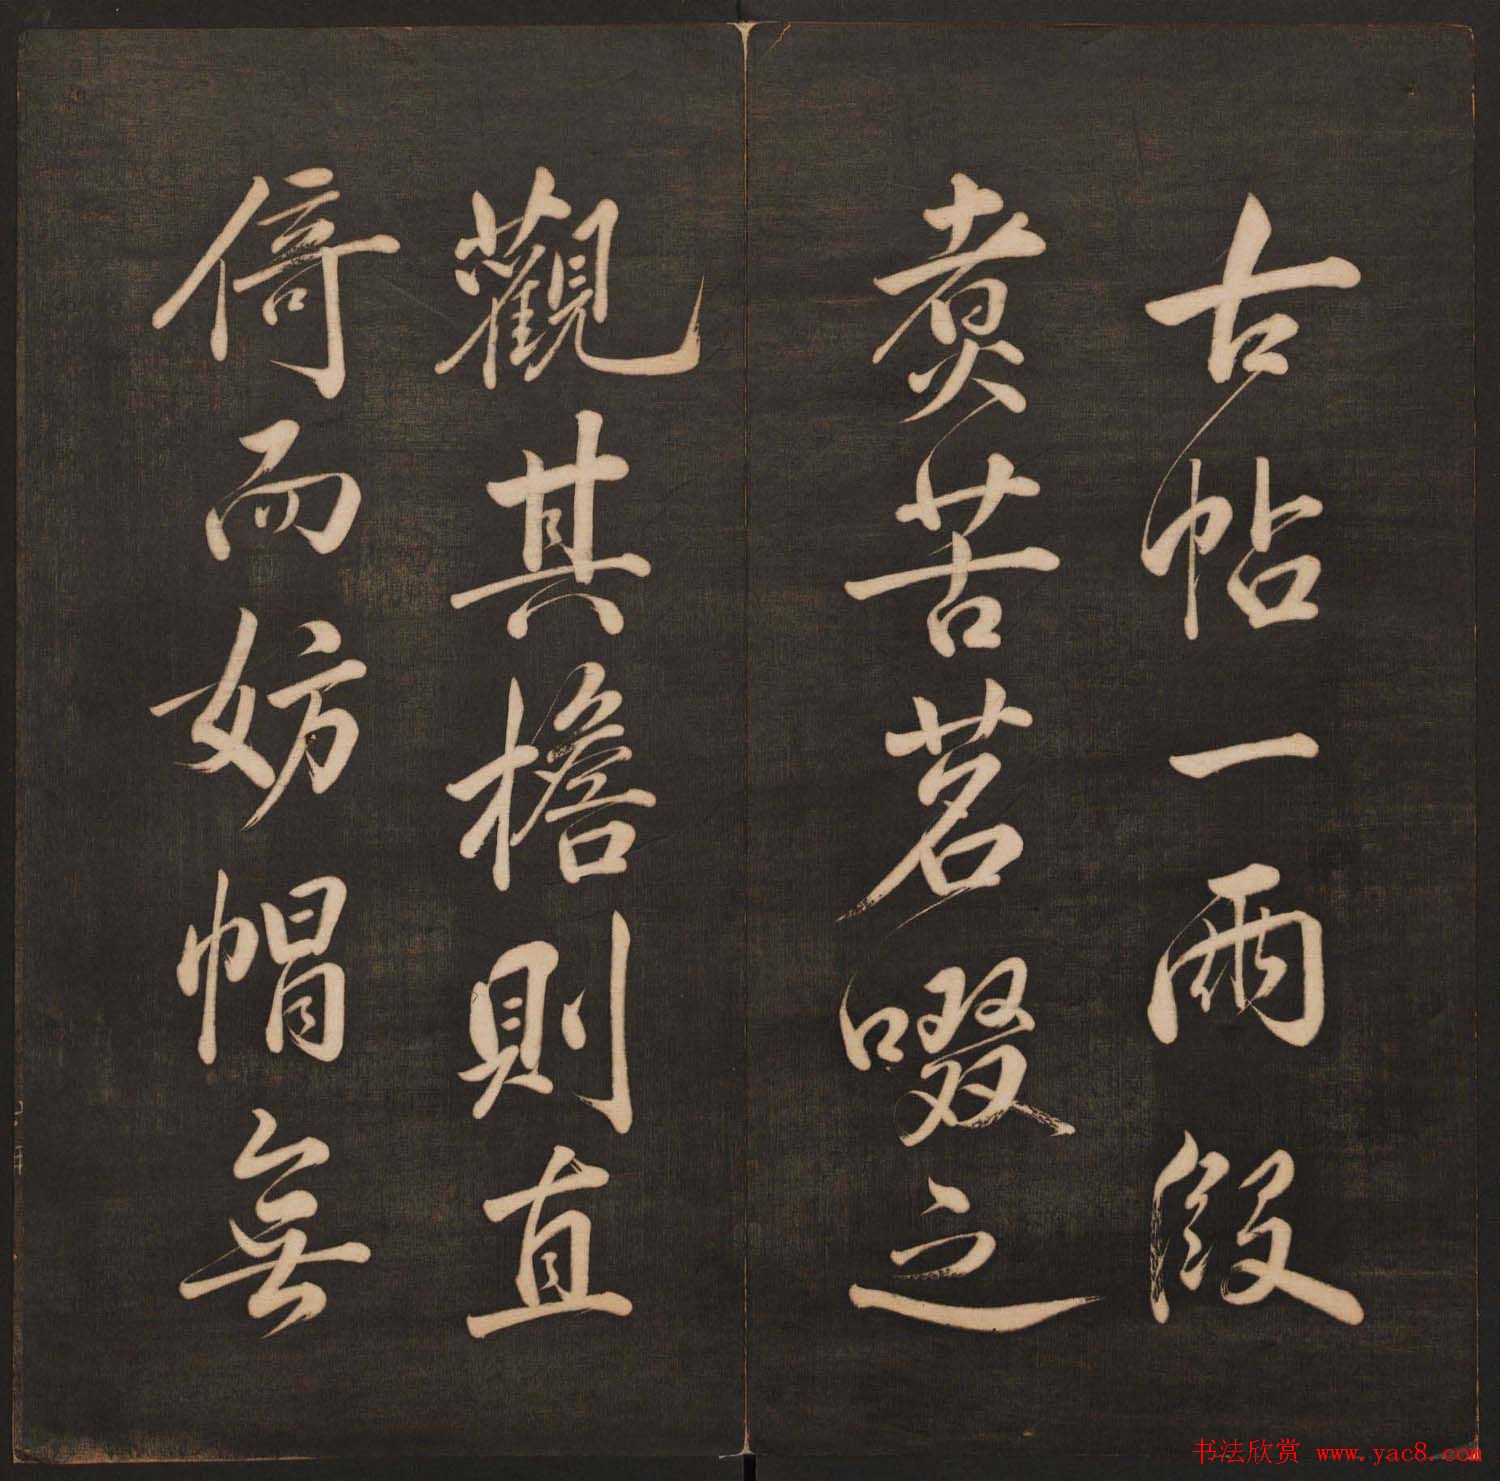 古帖一兩段
煑苦茗啜之
觀其檐則直
倚而妨帽無
书法欣赏 www.yac8.com